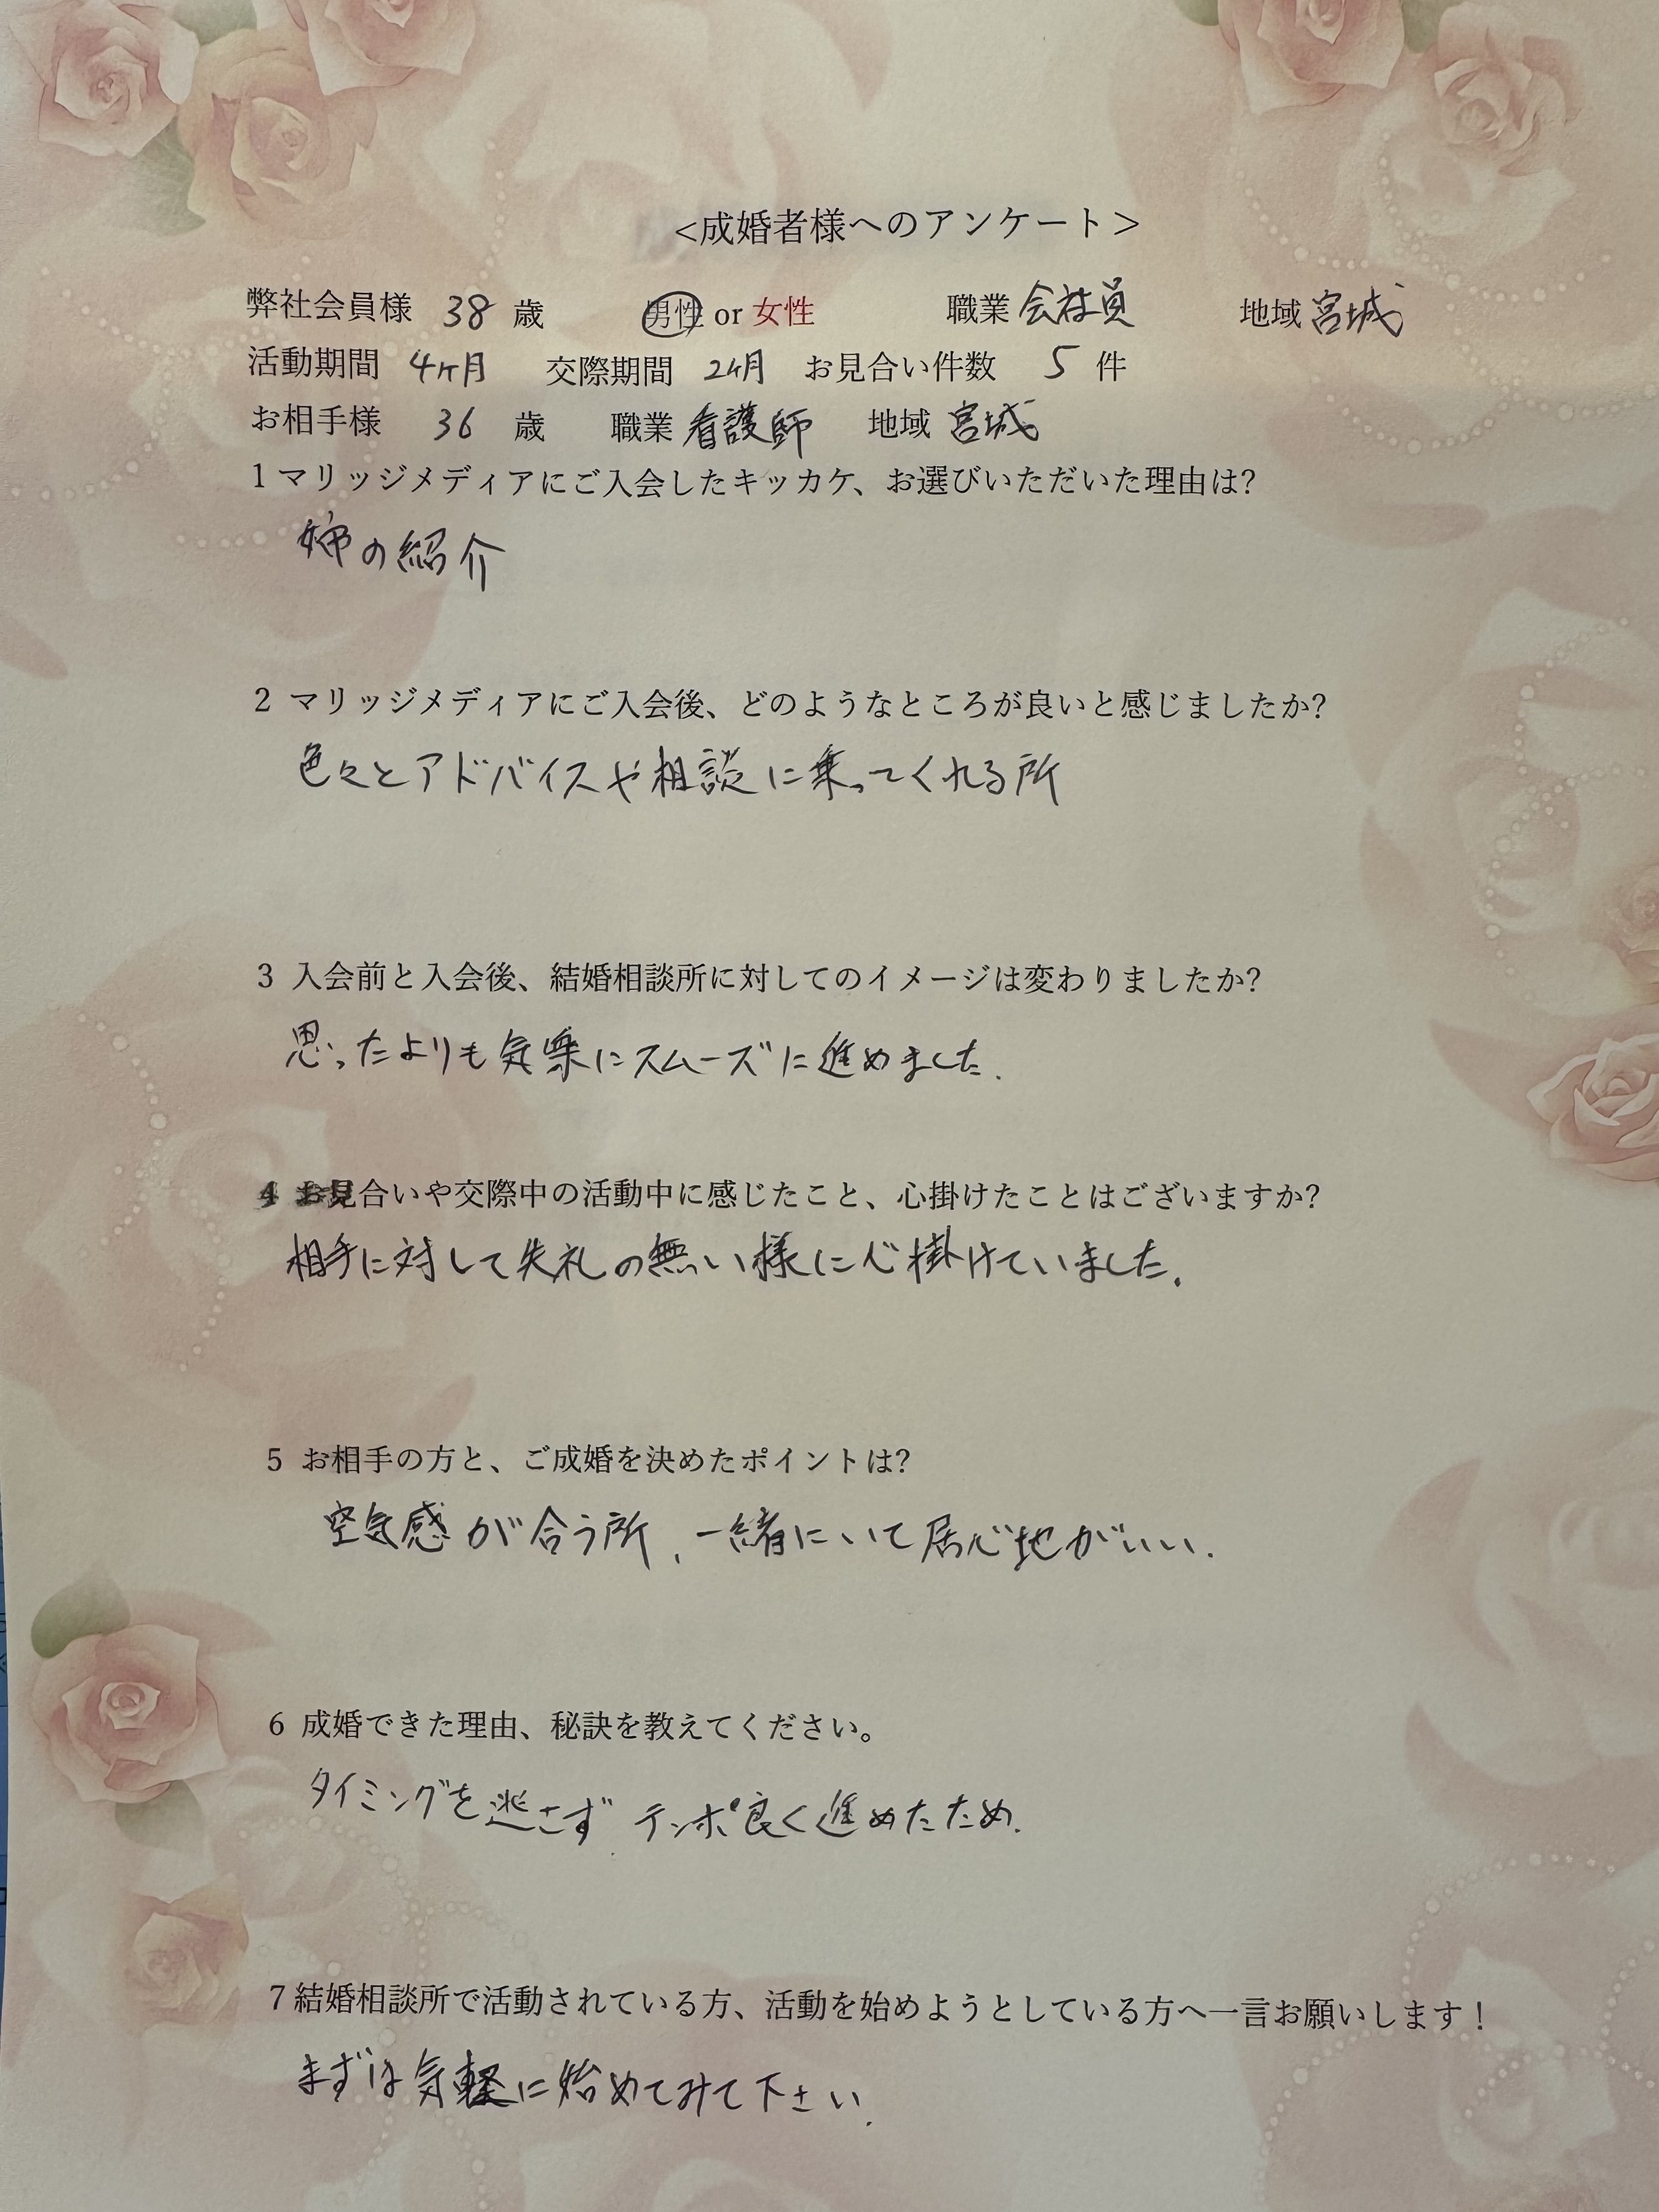 <成婚者様へのアンケート>
弊社会員様 38 歳 男性 or 女性 職業 会社員 地域 宮城
活動期間 4ヶ月 交際期間 2ヶ月 お見合い件数 5 件
お相手様 36 歳 職業 看護師 地域 宮城
1 マリッジメディアにご入会したキッカケ、お選びいただいた理由は?
姉の紹介
2 マリッジメディアにご入会後、どのようなところが良いと感じましたか?
色々とアドバイスや相談に乗ってくれる所
3 入会前と入会後、結婚相談所に対してのイメージは変わりましたか?
思ったよりも気楽にスムーズに進めました.
4 お見合いや交際中の活動中に感じたこと、心掛けたことはございますか?
相手に対して失礼の無い様に心掛けていました.
5 お相手の方と、ご成婚を決めたポイントは?
空気感が合う所、一緒にいて居心地がいい.
6 成婚できた理由、秘訣を教えてください。
タイミングを逃さず テンポ良く進めたため.
7 結婚相談所で活動されている方、活動を始めようとしている方へ一言お願いします!
まずは気軽に始めてみて下さい.